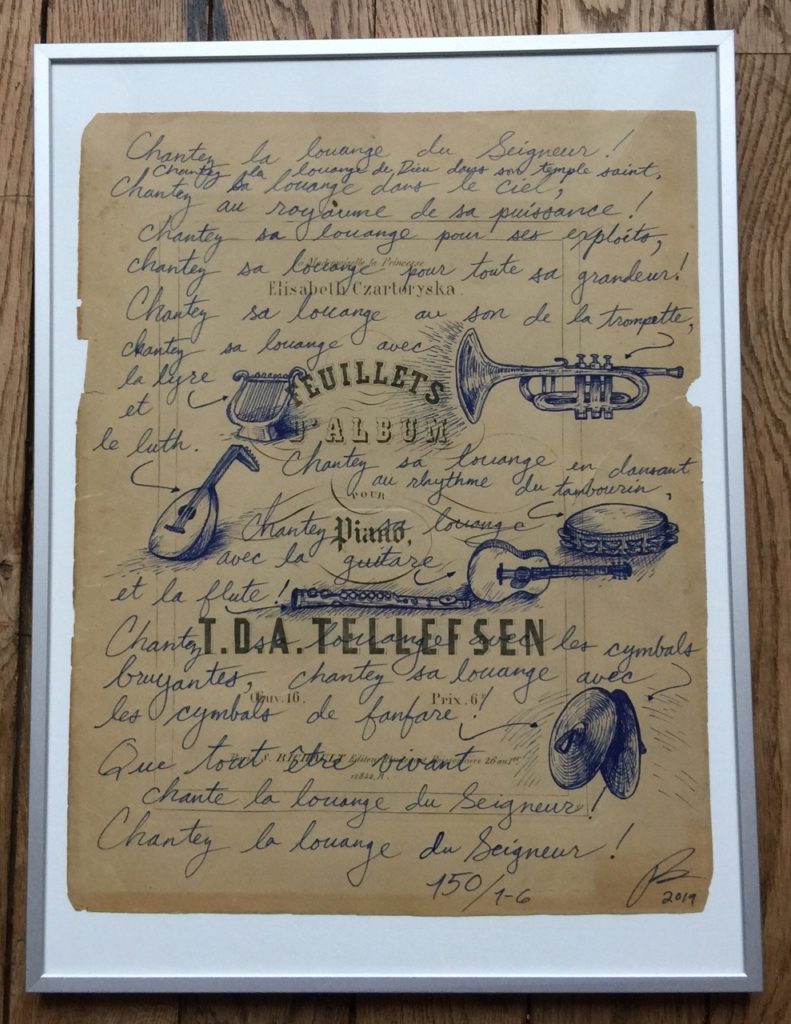 Chantez la louange du Seigneur!
Chantez la louange de Dieu dans son temple saint,
Chantez sa louange dans le ciel,
au royaume de sa puissance!
Chantez sa louange pour ses exploits,
A Mademoiselle la Princesse
chantez sa louange pour toute sa grandeur!
Elisabeth Czartoryska.
Chantez sa louange au son de la trompette,
chantez sa louange avec
la lyre
et
le luth.
FEUILLETS
D'ALBUM
Chantez sa louange en dansant
au rhythme du tambourin,
POUR
Chantez sa louange
Piano,
avec la guitare
et la flute!
T.D.A. TELLEFSEN
Chantez sa louange avec les cymbals
bruyantes, chantez sa louange avec
Œuv. 16. Prix. 6f
les cymbals de fanfare!
S. RICHAULT Editeur 26 au 1er
Que tout être vivant
12842. R.
chante la louange du Seigneur!
Chantez la louange du Seigneur!
150/1-6
2019